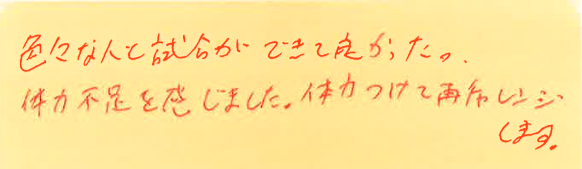 色々な人と試合ができて良かったっ.
体力不足を感じました。体力つけて再チャレンジ
します。